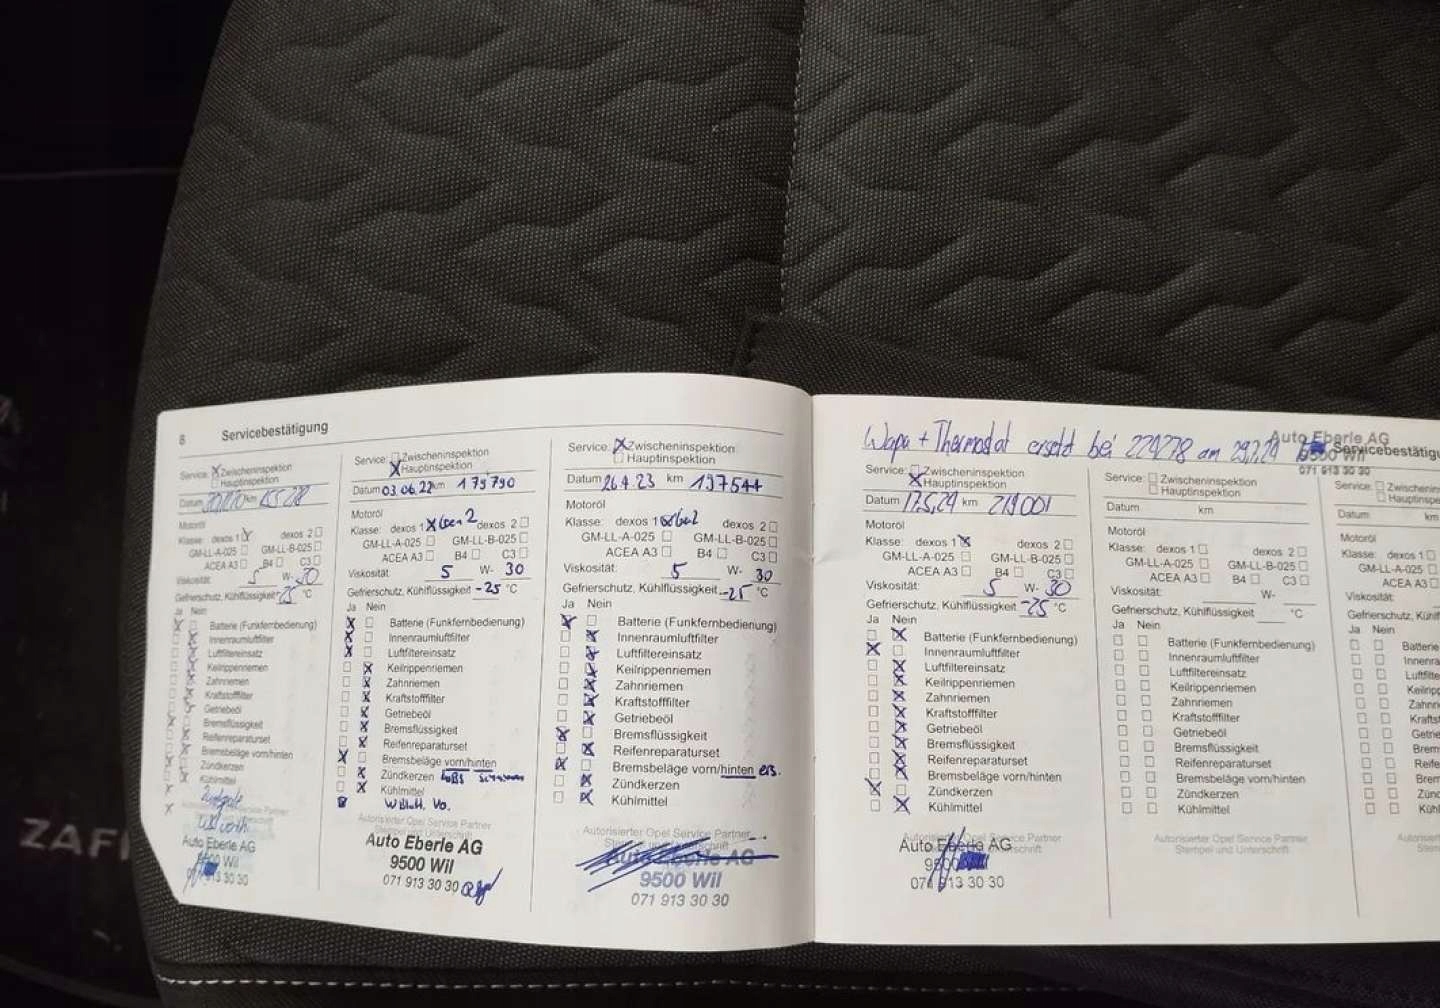 8 Servicebestätigung
Service: Zwischeninspektion
Hauptinspektion
Datum km
Motoröl
Klasse: dexos 1 dexos 2
GM-LL-A-025 GM-LL-B-025
ACEA A3 B4 C3
Viskosität: 5 W- 30
Gefrierschutz, Kühlflüssigkeit -25 °C
Ja Nein
Batterie (Funkfernbedienung)
Innenraumluftfilter
Luftfiltereinsatz
Keilrippenriemen
Zahnriemen
Kraftstofffilter
Getriebeöl
Bremsflüssigkeit
Reifenreparaturset
Bremsbeläge vorn/hinten
Zündkerzen
Kühlmittel
Auto Eberle AG
9500 Wil
913 30 30
Service: Zwischeninspektion
Hauptinspektion
Datum 03.06.22 km 179790
Motoröl
Klasse: dexos 1 Gen 2 dexos 2
GM-LL-A-025 GM-LL-B-025
ACEA A3 B4 C3
Viskosität: 5 W- 30
Gefrierschutz, Kühlflüssigkeit -25 °C
Ja Nein
Batterie (Funkfernbedienung)
Innenraumluftfilter
Luftfiltereinsatz
Keilrippenriemen
Zahnriemen
Kraftstofffilter
Getriebeöl
Bremsflüssigkeit
Reifenreparaturset
Bremsbeläge vorn/hinten
Zündkerzen
Kühlmittel
Vo.
Autorisierter Opel Service Partner
Auto Eberle AG
9500 Wil
071 913 30 30
Service: Zwischeninspektion
Hauptinspektion
Datum 26.4.23 km 197544
Motoröl
Klasse: dexos 1 dexos 2
GM-LL-A-025 GM-LL-B-025
ACEA A3 B4 C3
Viskosität: 5 W- 30
Gefrierschutz, Kühlflüssigkeit -25 °C
Ja Nein
Batterie (Funkfernbedienung)
Innenraumluftfilter
Luftfiltereinsatz
Keilrippenriemen
Zahnriemen
Kraftstofffilter
Getriebeöl
Bremsflüssigkeit
Reifenreparaturset
Bremsbeläge vorn/hinten ers.
Zündkerzen
Kühlmittel
Autorisierter Opel Service Partner
Auto Eberle AG
9500 Wil
071 913 30 30
Wapu + Thermostat ersetzt bei 224278 am 29.7.24
Auto Eberle AG
9500 Wil
071 913 30 30
Servicebestätigu
Service: Zwischeninspektion
Hauptinspektion
Datum 17.5.24 km 219001
Motoröl
Klasse: dexos 1 dexos 2
GM-LL-A-025 GM-LL-B-025
ACEA A3 B4 C3
Viskosität: 5 W- 30
Gefrierschutz, Kühlflüssigkeit -25 °C
Ja Nein
Batterie (Funkfernbedienung)
Innenraumluftfilter
Luftfiltereinsatz
Keilrippenriemen
Zahnriemen
Kraftstofffilter
Getriebeöl
Bremsflüssigkeit
Reifenreparaturset
Bremsbeläge vorn/hinten
Zündkerzen
Kühlmittel
Autorisierter Opel Service Partner
Auto Eberle AG
071 913 30 30
Service: Zwischeninspektion
Hauptinspektion
Datum km
Motoröl
Klasse: dexos 1 dexos 2
GM-LL-A-025 GM-LL-B-025
ACEA A3 B4 C3
Viskosität: W-
Gefrierschutz, Kühlflüssigkeit °C
Ja Nein
Batterie (Funkfernbedienung)
Innenraumluftfilter
Luftfiltereinsatz
Keilrippenriemen
Zahnriemen
Kraftstofffilter
Getriebeöl
Bremsflüssigkeit
Reifenreparaturset
Bremsbeläge vorn/hinten
Zündkerzen
Kühlmittel
Autorisierter Opel Service Partner
Stempel und Unterschrift
Service: Zwischeninspek
Hauptinspekt
Datum km
Motoröl
Klasse: dexos 1
GM-LL-A-025
ACEA A3
Viskosität:
Gefrierschutz, Kühlflü
Ja Nein
Batterie
Innenra
Luftfilte
Keilripp
Zahnri
Kraftst
Getrie
Brems
Reife
Brem
Zünd
Kühl
ZAFI